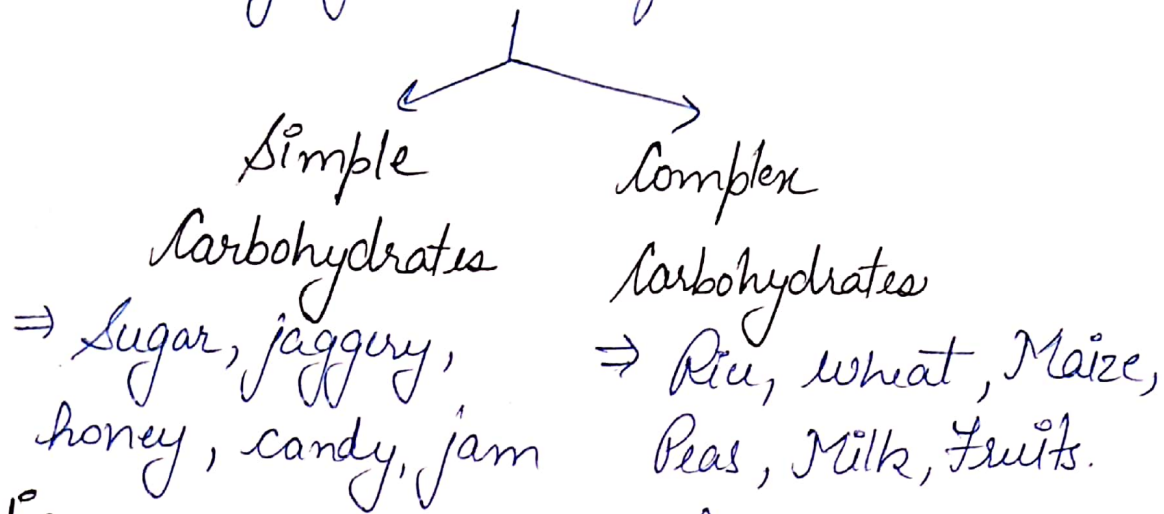 Simple
Carbohydrates
⇒ Sugar, jaggery,
honey, candy, jam
Complex
Carbohydrates
⇒ Rice, wheat, Maize,
Peas, Milk, Fruits.